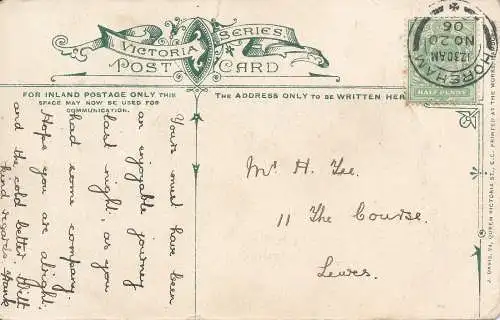 VICTORIA SERIES
POST CARD
FOR INLAND POSTAGE ONLY THIS
SPACE MAY NOW BE USED FOR
COMMUNICATION.
THE ADDRESS ONLY TO BE WRITTEN HERE
HORSHAM
12.30AM
NO 20
06
HALF PENNY
Yours must have been
an enjoyable journey
last night, as you
had some company.
Hope you are alright.
and the cold better. With
kind regards. Frank
Mr H. Lee.
11 The Course.
Lewes.
J. DAVIS, 24, QUEEN VICTORIA ST., E.C. PRINTED AT